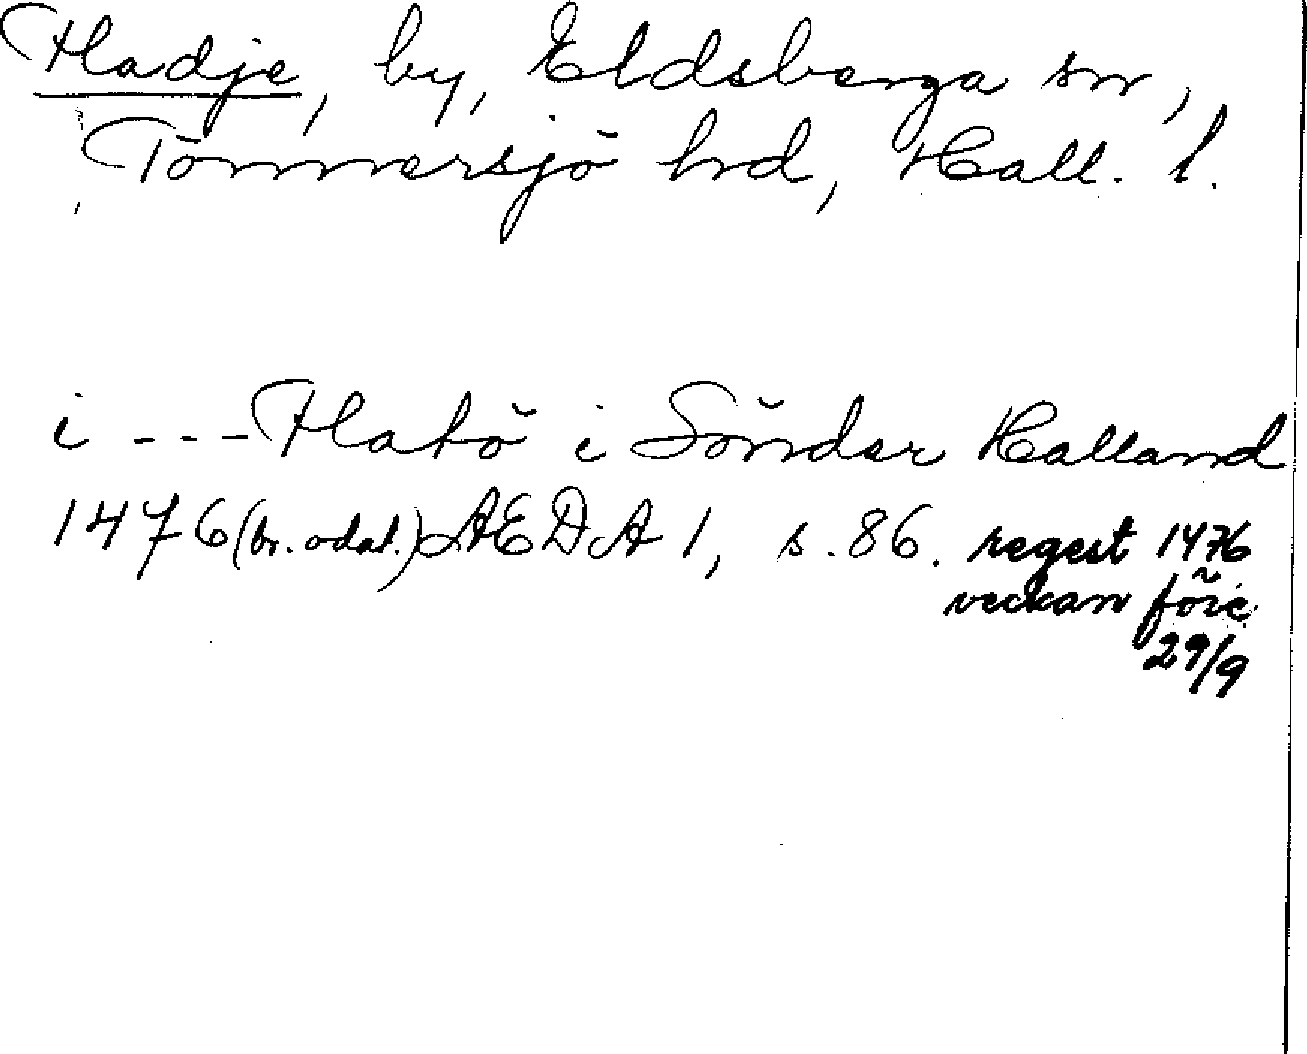 Fladje, by, Eldsberga sn,
Tönnersjö hd, Hall. l.
i --- Flatö i Sönder Halland
1476 (br. odat.) AEDA 1, s. 86. regest 1476
veckan före
29/9